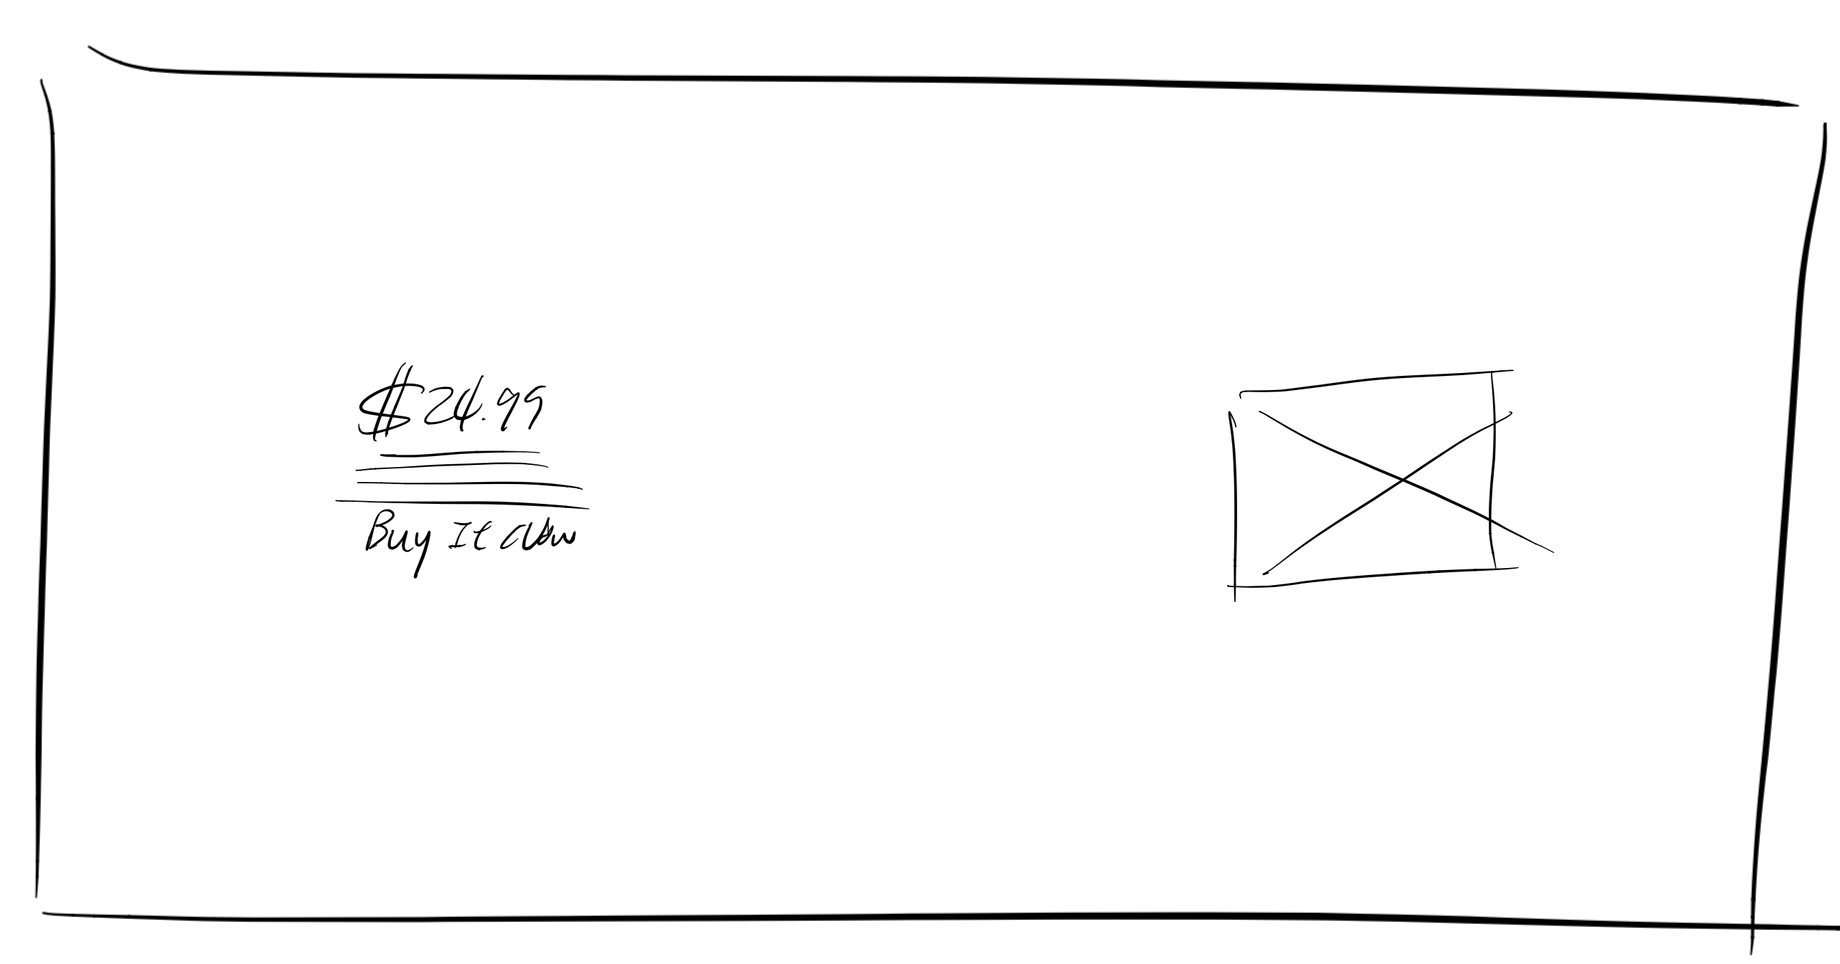 $24.99
Buy It Now